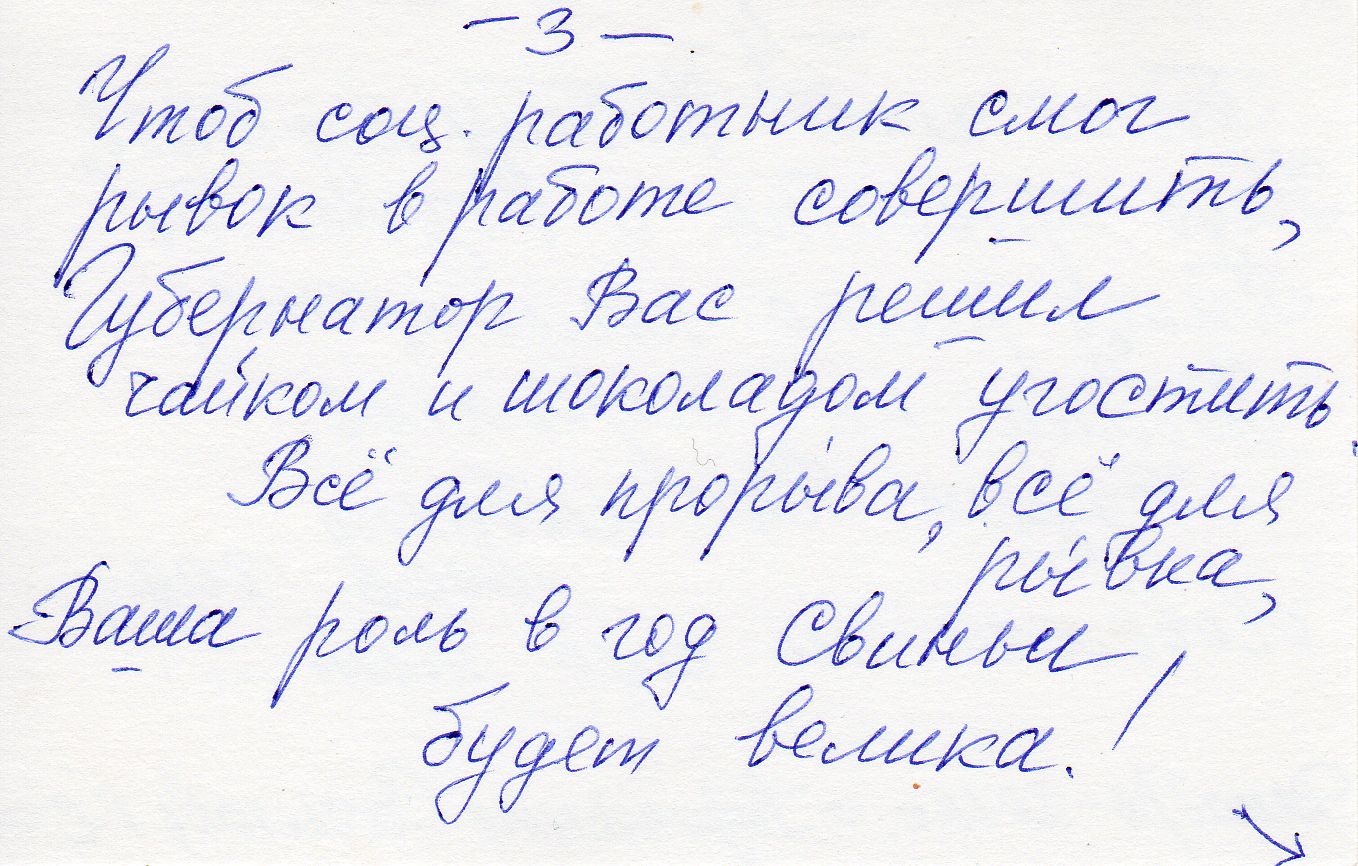 – 3 –
Чтоб соц. работник смог
рывок в работе совершить,
Губернатор Вас решил
чайком и шоколадом угостить.
Всё для прорыва, всё для
рывка,
Ваша роль в год Свиньи
будет велика!